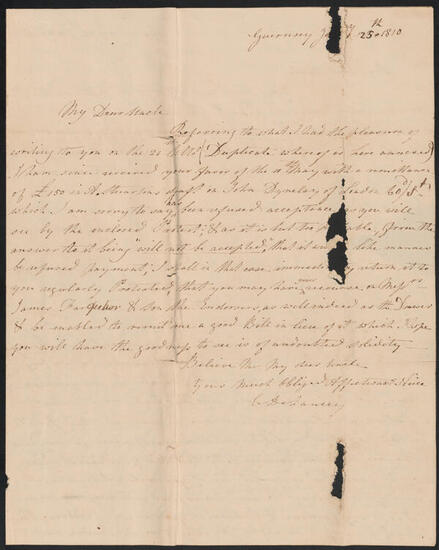 Guernsey 25th 1810
My Dear Uncle
Referring to what I had the pleasure of
writing to you on the 21 Ulto (Duplicate whereof is here annexed)
I have since received your favor of the 11th May with a remittance
of £150 in A. draft on John of London 60 d/st
which I am sorry to say has been refused acceptance, as you will
see by the enclosed Protest; & as it is but too from the
answer to it being "will not be accepted," that it will in like manner
be refused payment; I shall in that case, immediately return it to
you regularly Protested, that you may have on Messrs
James & Son the Endorsers, as well indeed as the Drawer
& be enabled to remit me a good Bill in lieu of it which I hope
you will have the goodness to see is of undoubted solidity
Believe Me My dear uncle
Your Much Obliged Affectionate Niece